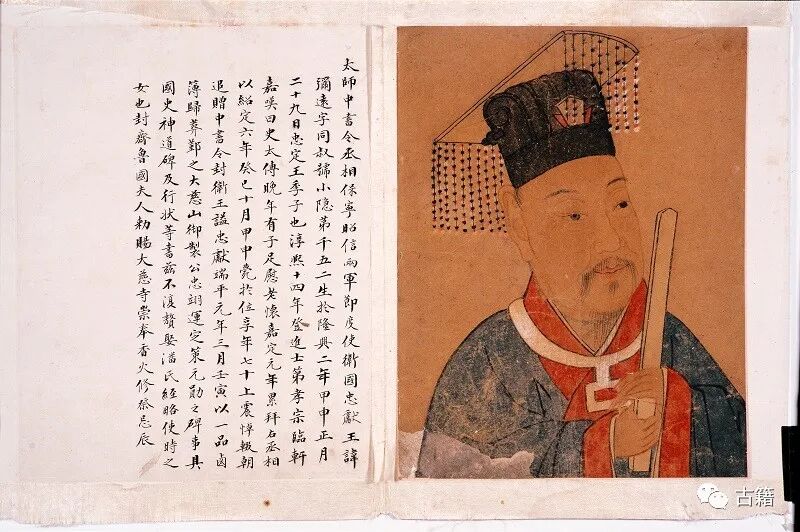 太師中書令丞相保寧昭信兩軍節度使衞國忠獻王諱
彌遠字同叔號小隐第千五二生於隆興二年甲申正月
二十九日忠定王季子也淳熙十四年登進士第孝宗臨軒
嘉嘆曰史太傅晚年有子足慰老懷嘉定元年累拜右丞相
以紹定六年癸巳十月甲申薨於位享年七十上震悼輟朝
追贈中書令封衞王謚忠獻端平元年三月壬寅以一品鹵
簿歸葬鄞之大慈山御製公忠翊運定策元勛之碑事具
國史神道碑及行狀等書兹不復贅娶潘氏經略使時之
女也封齊魯國夫人勅賜大慈寺崇奉香火修祭忌辰
古籍